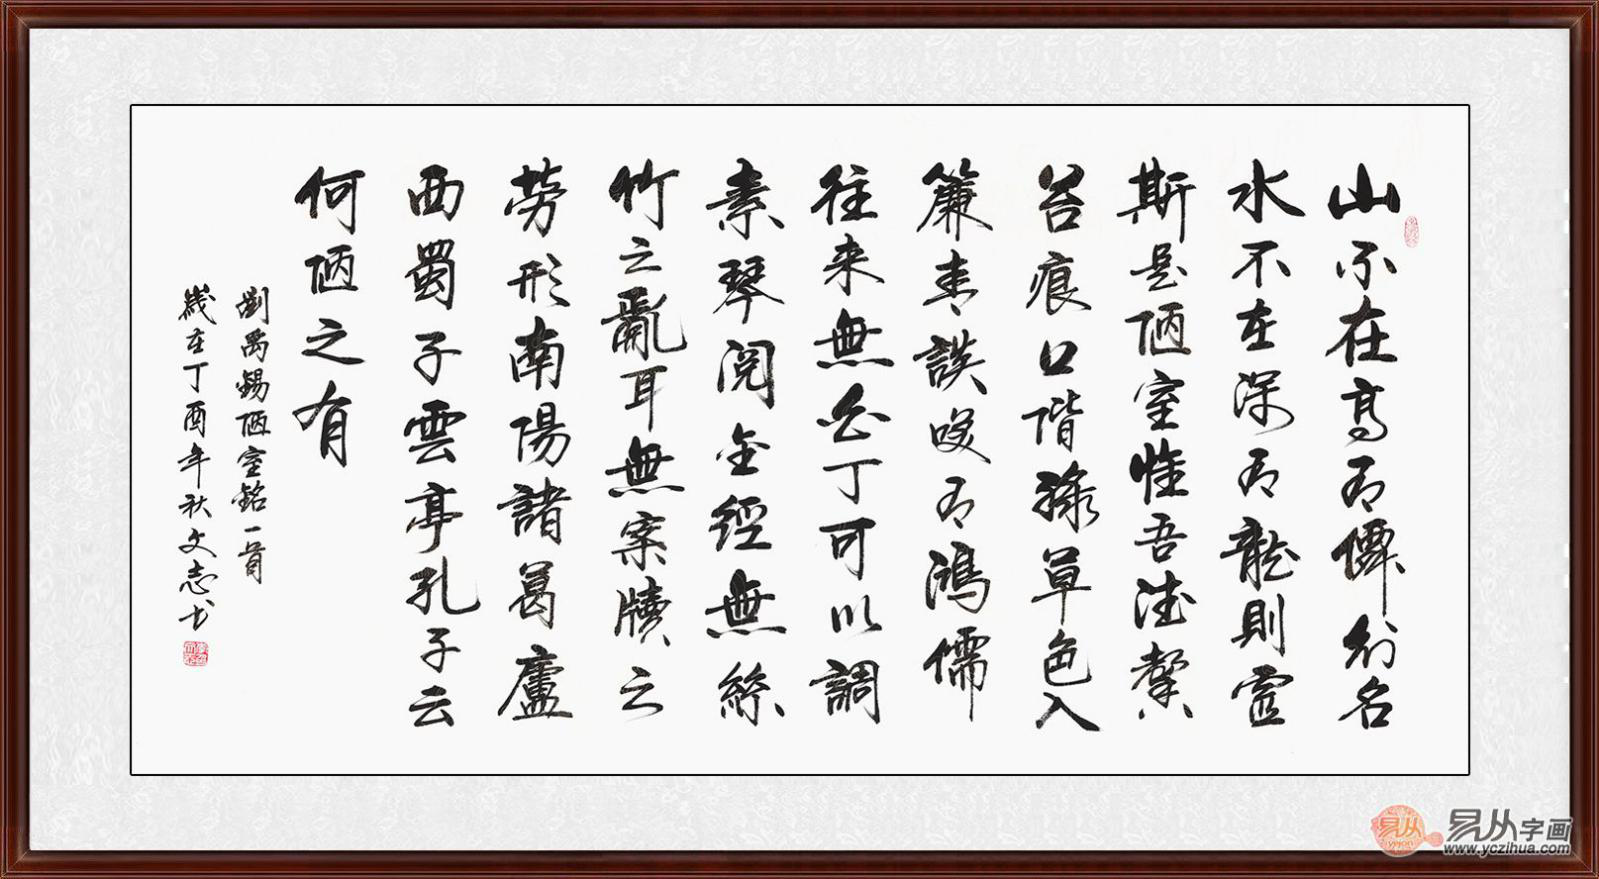 山不在高有僊則名
水不在深有龍則靈
斯是陋室惟吾德馨
苔痕口階綠草色入
簾青談笑有鴻儒
往来無白丁可以調
素琴閱金經無絲
竹之亂耳無案牘之
勞形南陽諸葛廬
西蜀子雲亭孔子云
何陋之有
劉禹錫陋室銘一首
歲在丁酉年秋文志书
易从 易从字画
yejon www.yczihua.com